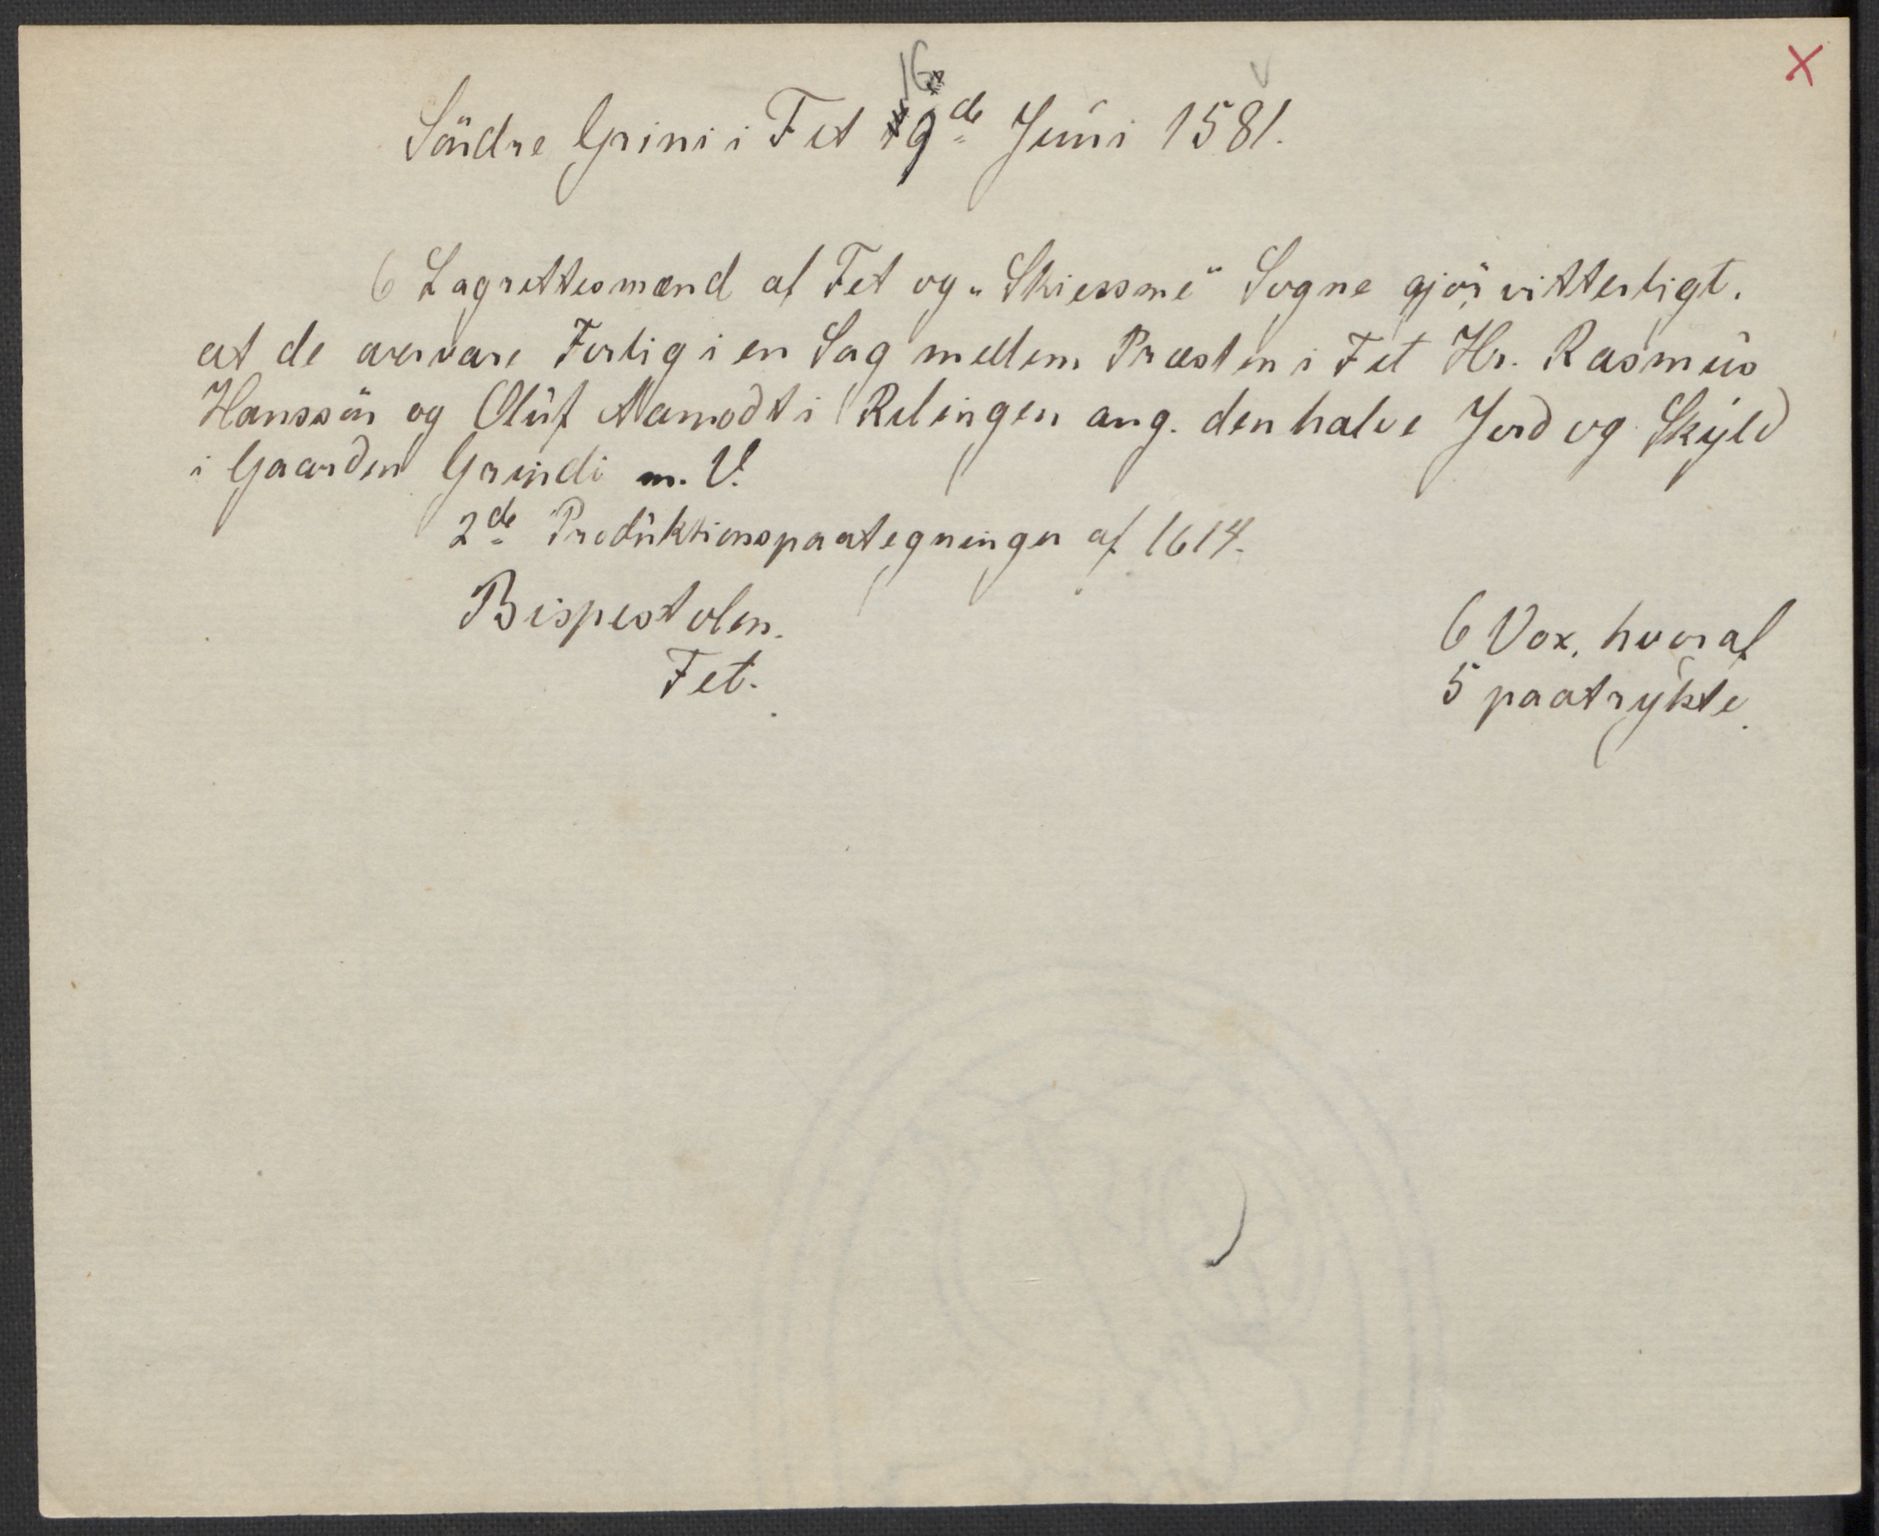 X
16
Söndre Grini i Fet 9de Juni 1581.
6 Lagrettesmænd af Fet og „Skiessme" Sogne gjör vitterligt,
at de overvare Forlig i en Sag mellem Præsten i Fet Hr. Rasmus
Hanssön og Oluf Aamodt i Relingen ang. den halve Jord og Skyld
i Gaarden Grindi m. V.
2de Produktionspaategninger af 1614.
Bispestolen.
Fet.
6 Vox, hvoraf
5 paatrykte.